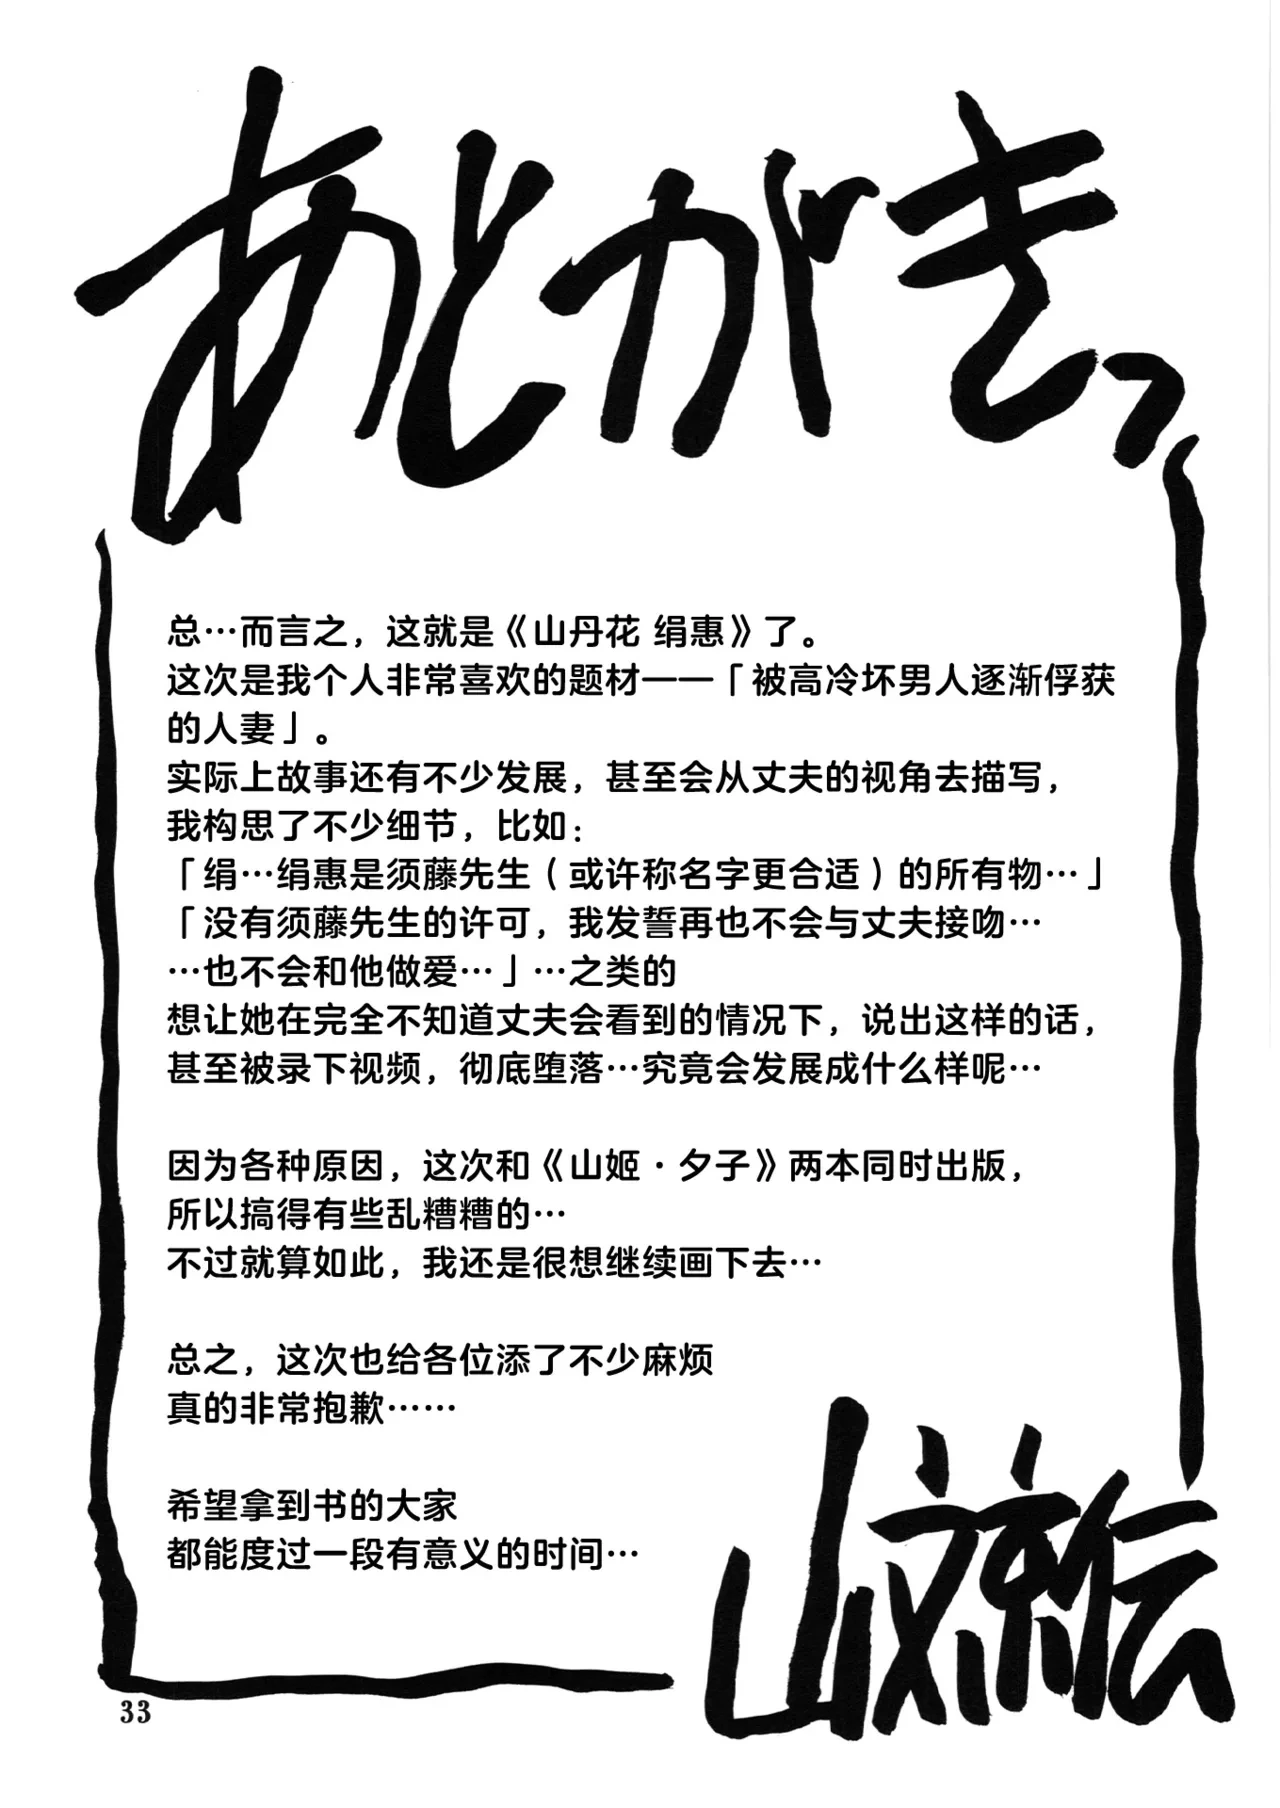 あとがきっ
总…而言之，这就是《山丹花 绢惠》了。
这次是我个人非常喜欢的题材——「被高冷坏男人逐渐俘获
的人妻」。
实际上故事还有不少发展，甚至会从丈夫的视角去描写，
我构思了不少细节，比如：
「绢…绢惠是须藤先生（或许称名字更合适）的所有物…」
「没有须藤先生的许可，我发誓再也不会与丈夫接吻…
…也不会和他做爱…」…之类的
想让她在完全不知道丈夫会看到的情况下，说出这样的话，
甚至被录下视频，彻底堕落…究竟会发展成什么样呢…
因为各种原因，这次和《山姬·夕子》两本同时出版，
所以搞得有些乱糟糟的…
不过就算如此，我还是很想继续画下去…
总之，这次也给各位添了不少麻烦
真的非常抱歉……
希望拿到书的大家
都能度过一段有意义的时间…
山文京伝
33